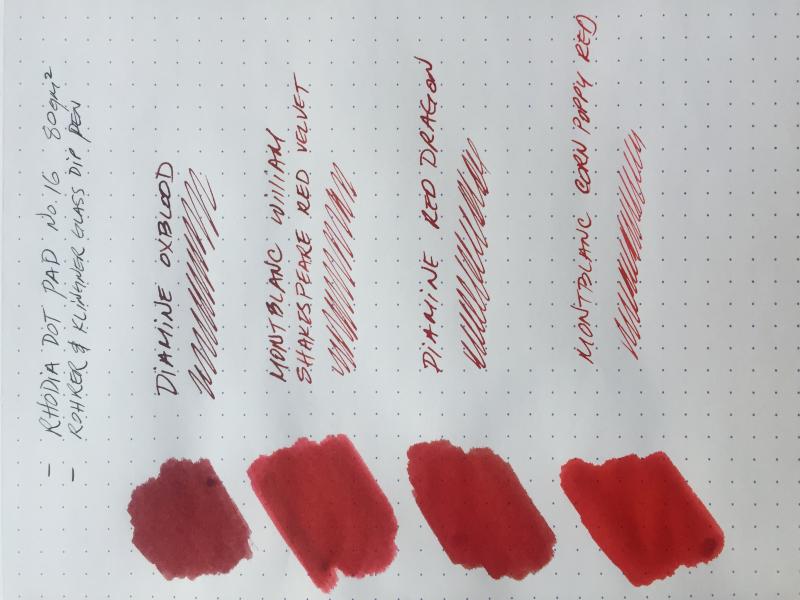 - RHODIA DOT PAD No. 16 80gm²
- ROHRER & KLINGNER GLASS DIP PEN
DIAMINE OXBLOOD
MONTBLANC WILLIAM
SHAKESPEARE RED VELVET
DIAMINE RED DRAGON
MONTBLANC CORN POPPY RED